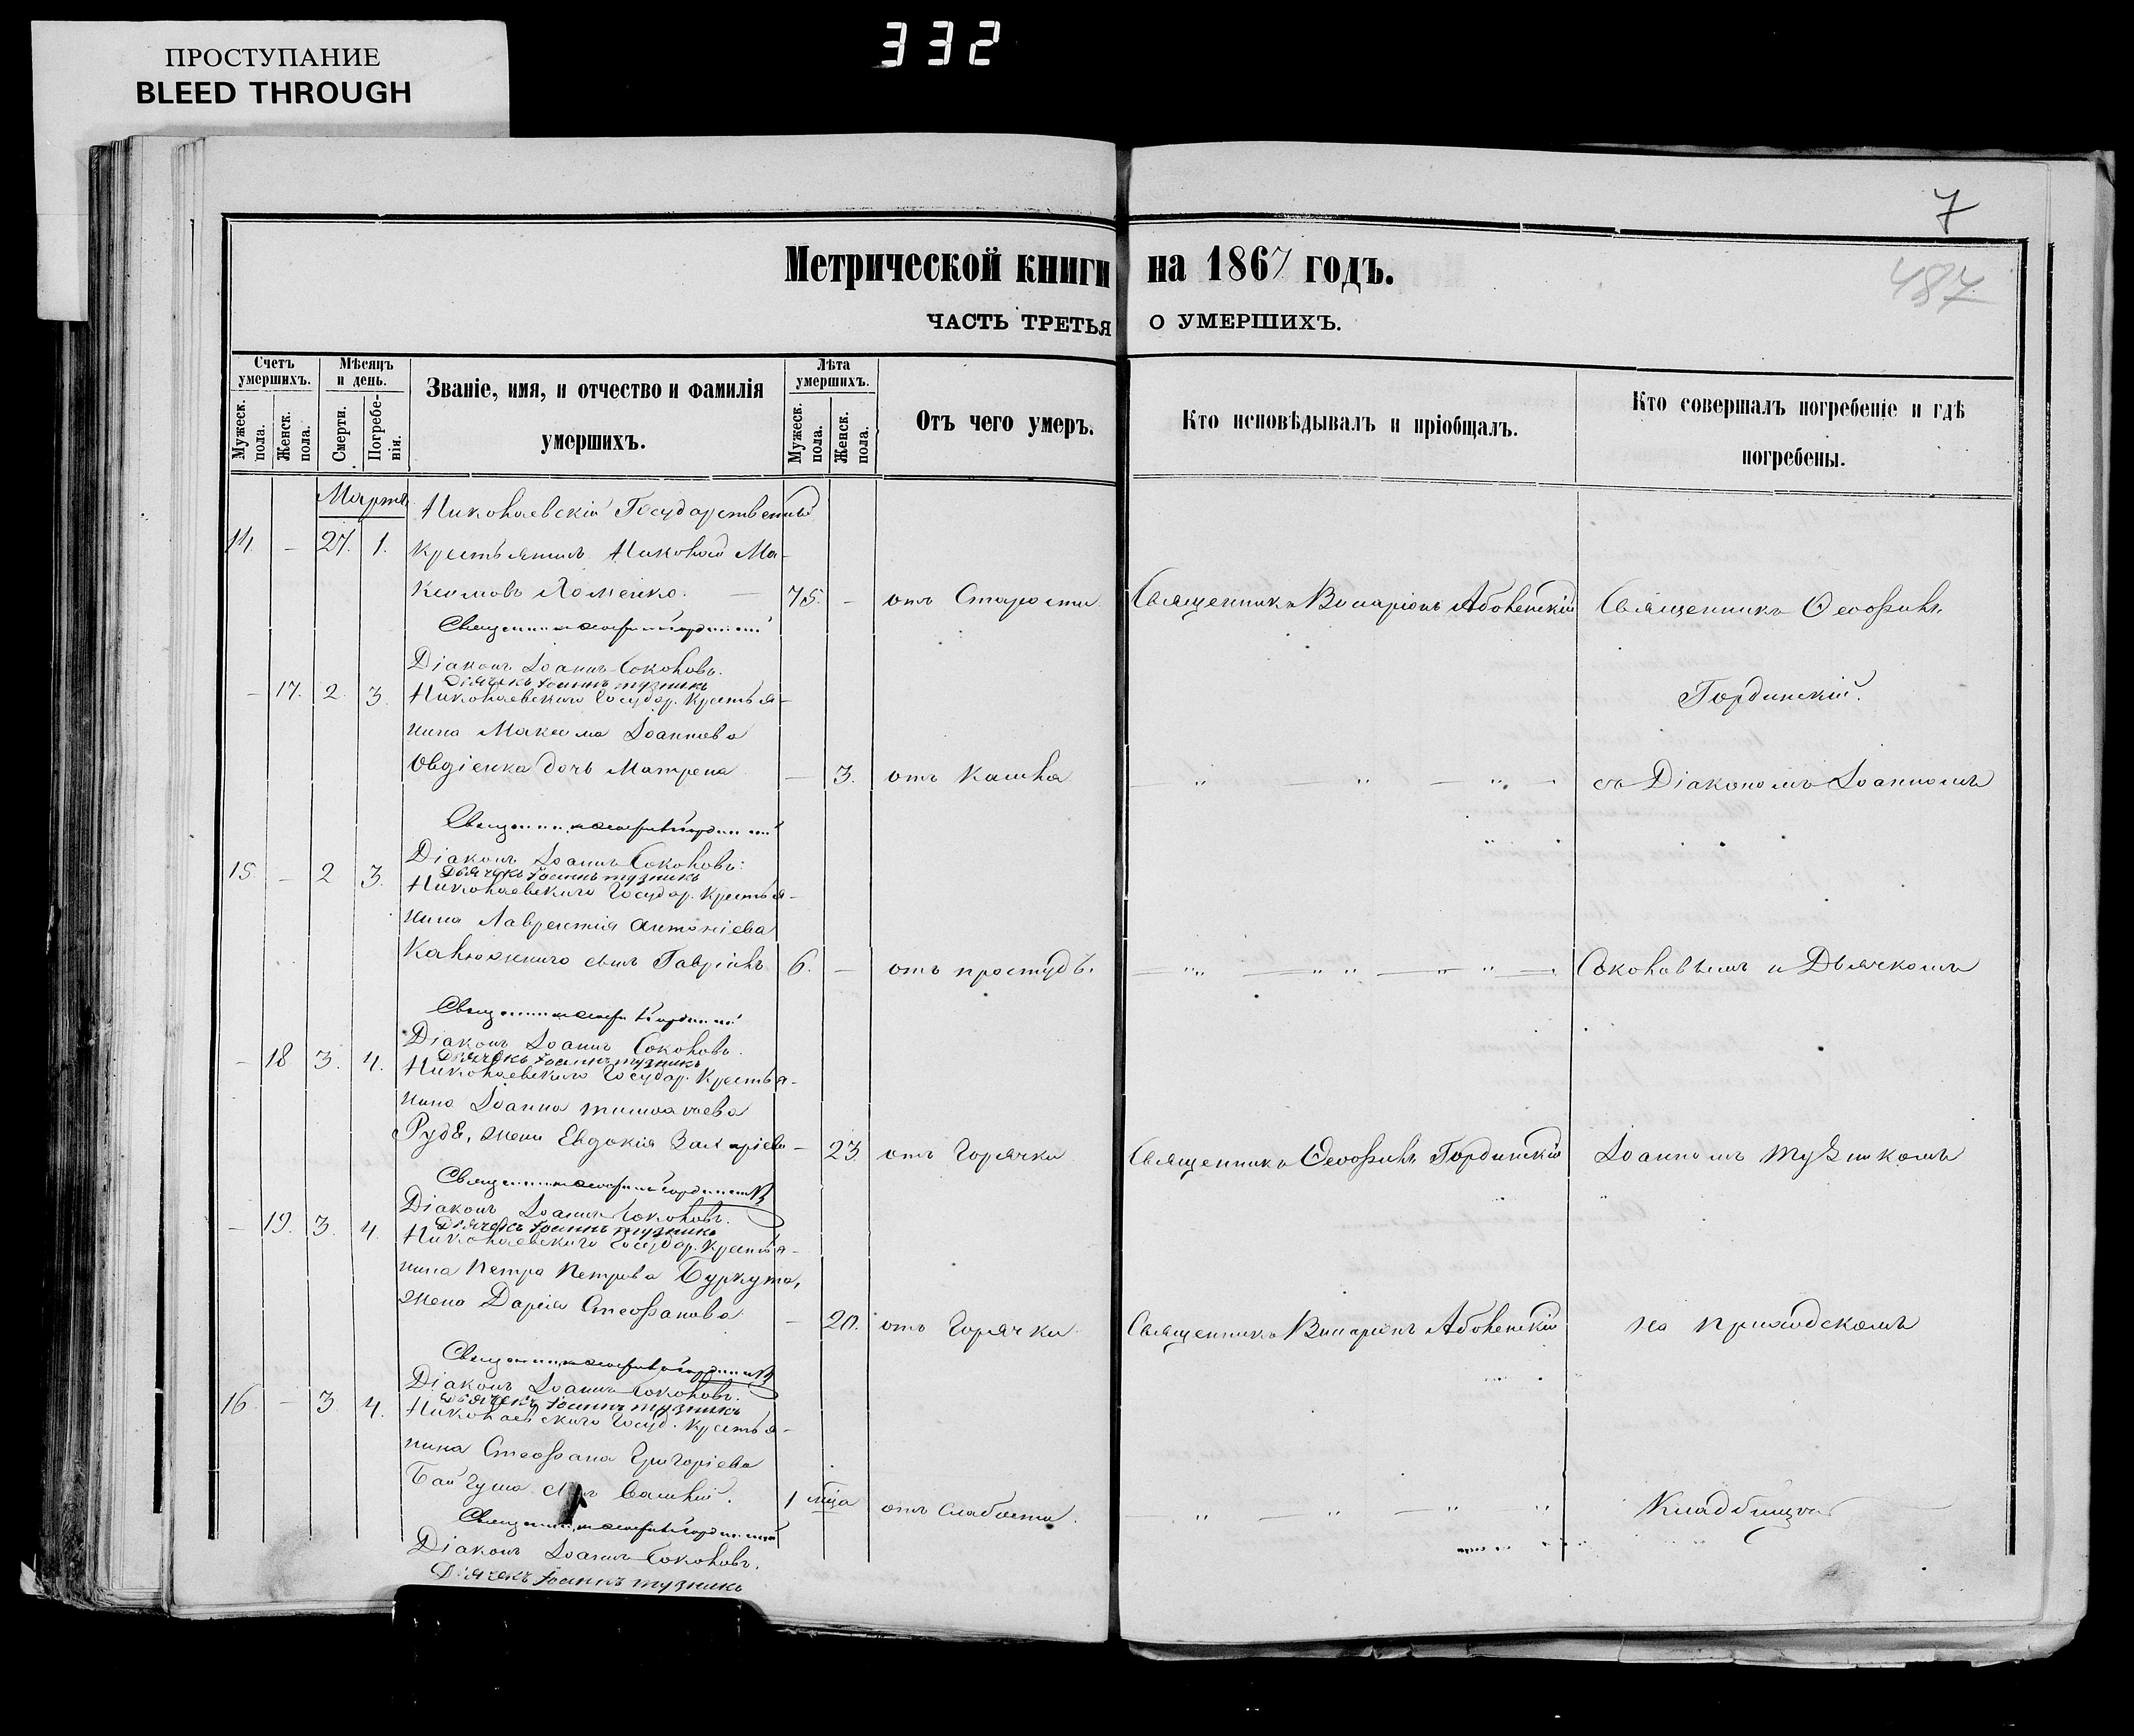 332
ПРОСТУПАНИЕ
BLEED THROUGH
7
Метрической книги на 1867 годъ.
487
ЧАСТЬ ТРЕТЬЯ О УМЕРШИХЪ.
Счетъ умершихъ.
Мужеск. пола.
Женск. пола.
Мѣсяцъ и день.
Смерти.
Погребенія.
Званіе, имя, и отчество и фамилія умершихъ.
Лѣта умершихъ.
Мужеск. пола.
Женск. пола.
Отъ чего умеръ.
Кто исповѣдывалъ и пріобщалъ.
Кто совершалъ погребеніе и гдѣ погребены.
Марта
Николаевскій Государственный
14. – 27. 1. крестьянинъ Николай Ма-
ксимовъ Хоменко. 75. – отъ Старости Священникъ Виссаріонъ Священникъ Ѳеофилъ
Священникъ Ѳеофилъ Гординскій
Діаконъ Іоаннъ Соколовъ.
Дьячекъ Іоаннъ тузникъ
– 17. 2. 3. Николаевскаго Государ. Крестья- Гординскій.
нина Максима Іоаннова
Овдіенка дочь Матрена – 3. отъ Кашля – " – " – " – съ Діакономъ Іоанномъ
Священникъ Ѳеофилъ Гординскій
Діаконъ Іоаннъ Соколовъ.
Дьячекъ Іоаннъ тузникъ
15. – 2. 3. Николаевскаго Государ. Крестья-
нина Лаврентія Антоніева
сынъ Гавріилъ 6. – отъ простуды – " – " – " – Соколовымъ и Дьячкомъ
Священникъ Ѳеофилъ Гординскій
Діаконъ Іоаннъ Соколовъ.
Дьячекъ Іоаннъ тузникъ
– 18 3. 4. Николаевскаго Государ. Крестья-
нина Іоанна
жена Евдокія Захаріева – 23. отъ Горячки Священникъ Ѳеофилъ Гординскій Іоанномъ тузникомъ
Священникъ Ѳеофилъ Гординскій
Діаконъ Іоаннъ Соколовъ.
Дьячекъ Іоаннъ тузникъ
– 19. 3. 4. Николаевскаго Государ. Крестья-
нина Петра Петрова Буркута,
жена Дарія Стефанова – 20. отъ Горячки Священникъ Виссаріонъ на приходскомъ
Священникъ Ѳеофилъ Гординскій
Діаконъ Іоаннъ Соколовъ.
Дьячекъ Іоаннъ тузникъ
16. – 3. 4. Николаевскаго Госуд. Крестья-
нина Стефана Григоріева
сынъ Василій. 1 мѣца отъ Слабости. – " – " – " " Кладбищѣ
Священникъ Ѳеофилъ Гординскій
Діаконъ Іоаннъ Соколовъ.
Дьячекъ Іоаннъ тузникъ